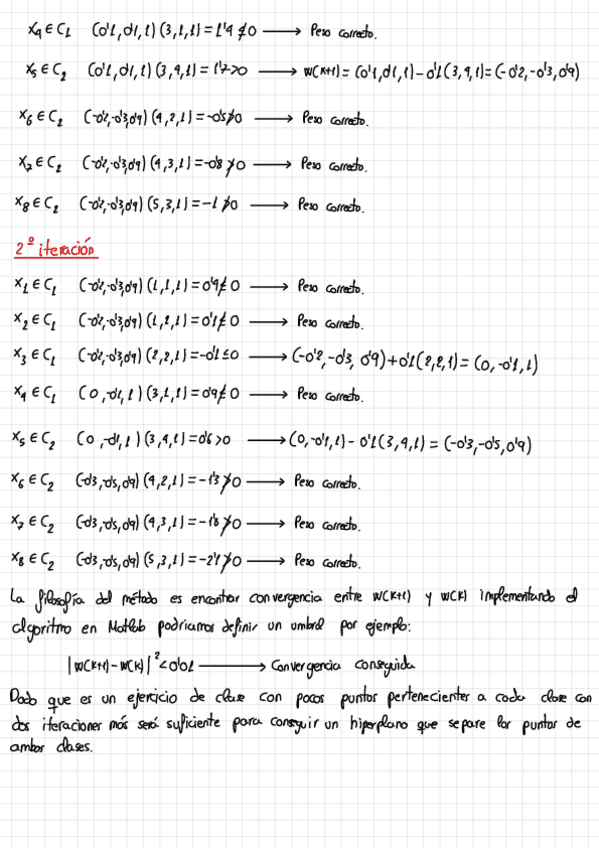 x₄ ∈ C₁ (0'1, 0'1, 1) (3,1,1) = 1'4 ≰ 0 ⟶ Peso correcto.
x₅ ∈ C₂ (0'1, 0'1, 1) (3,4,1) = 1'7 > 0 ⟶ w(k+1) = (0'1, 0'1, 1) - 0'1 (3,4,1) = (-0'2, -0'3, 0'9)
x₆ ∈ C₂ (-0'2, -0'3, 0'9) (4,2,1) = -0'5 ≯ 0 ⟶ Peso correcto.
x₇ ∈ C₂ (-0'2, -0'3, 0'9) (4,3,1) = -0'8 ≯ 0 ⟶ Peso correcto.
x₈ ∈ C₂ (-0'2, -0'3, 0'9) (5,3,1) = -1 ≯ 0 ⟶ Peso correcto.
2º iteración
x₁ ∈ C₁ (-0'2, -0'3, 0'9) (1,1,1) = 0'4 ≰ 0 ⟶ Peso correcto.
x₂ ∈ C₁ (-0'2, -0'3, 0'9) (1,2,1) = 0'1 ≰ 0 ⟶ Peso correcto.
x₃ ∈ C₁ (-0'2, -0'3, 0'9) (2,2,1) = -0'1 ≤ 0 ⟶ (-0'2, -0'3, 0'9) + 0'1 (2,2,1) = (0, -0'1, 1)
x₄ ∈ C₁ (0, -0'1, 1) (3,1,1) = 0'9 ≰ 0 ⟶ Peso correcto.
x₅ ∈ C₂ (0, -0'1, 1) (3,4,1) = 0'6 > 0 ⟶ (0, -0'1, 1) - 0'1 (3,4,1) = (-0'3, -0'5, 0'9)
x₆ ∈ C₂ (-0'3, -0'5, 0'9) (4,2,1) = -1'3 ≯ 0 ⟶ Peso correcto.
x₇ ∈ C₂ (-0'3, -0'5, 0'9) (4,3,1) = -1'8 ≯ 0 ⟶ Peso correcto.
x₈ ∈ C₂ (-0'3, -0'5, 0'9) (5,3,1) = -2'1 ≯ 0 ⟶ Peso correcto.
La filosofía del método es encontrar convergencia entre w(k+1) y w(k) implementando el
algoritmo en Matlab podríamos definir un umbral por ejemplo:
|w(k+1) - w(k)|² < 0'01 ⟶ Convergencia conseguida
Dado que es un ejercicio de clase con pocos puntos pertenecientes a cada clase con
dos iteraciones más será suficiente para conseguir un hiperplano que separe los puntos de
ambas clases.